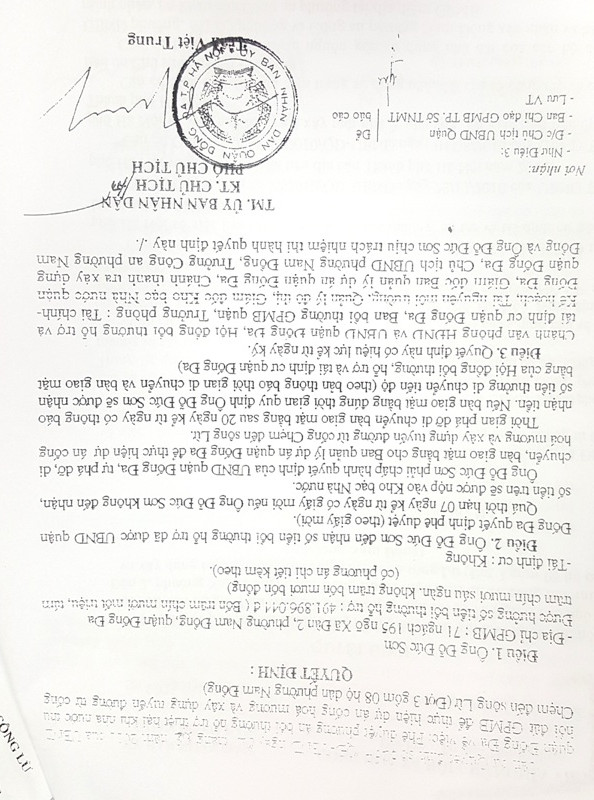 quận Đống Đa về việc: Phê duyệt phương án bồi thường hỗ trợ thiệt hại khi nhà nước thu
nối đất GPMB để thực hiện dự án cống hoá mương và xây dựng tuyến đường từ cống
Chẹm đến sông Lừ (Đợt 3 gồm 08 hộ dân phường Nam Đồng)
QUYẾT ĐỊNH :
Điều 1. Ông Đỗ Đức Sơn
- Địa chỉ GPMB : 71 ngách 195 ngõ Xã Đàn 2, phường Nam Đồng, quận Đống Đa
Được hưởng số tiền bồi thường hỗ trợ : 491.896.044 đ ( Bốn trăm chín mươi mốt triệu, tám
trăm chín mươi sáu ngàn, không trăm bốn mươi bốn đồng)
(có phương án chi tiết kèm theo).
-Tái định cư : Không
Điều 2. Ông Đỗ Đức Sơn đến nhận số tiền bồi thường hỗ trợ đã được UBND quận
Đống Đa quyết định phê duyệt (theo giấy mời).
Quá thời hạn 07 ngày kể từ ngày có giấy mời nếu Ông Đỗ Đức Sơn không đến nhận,
số tiền trên sẽ được nộp vào Kho bạc Nhà nước.
Ông Đỗ Đức Sơn phải chấp hành quyết định của UBND quận Đống Đa, tự phá dỡ, di
chuyển, bàn giao mặt bằng cho Ban quản lý dự án quận Đống Đa để thực hiện dự án cống
hoá mương và xây dựng tuyến đường từ cống Chẹm đến sông Lừ.
Thời gian phá dỡ di chuyển bàn giao mặt bằng sau 20 ngày kể từ ngày có thông báo
nhận tiền. Nếu bàn giao mặt bằng đúng thời gian quy định Ông Đỗ Đức Sơn sẽ được nhận
số tiền thưởng di chuyển tiến độ (theo bản thông báo thời gian di chuyển và bàn giao mặt
bằng của Hội đồng bồi thường, hỗ trợ và tái định cư quận Đống Đa)
Điều 3. Quyết định này có hiệu lực kể từ ngày ký.
Chánh văn phòng HĐND và UBND quận Đống Đa, Hội đồng bồi thường hỗ trợ và
tái định cư quận Đống Đa, Ban bồi thường GPMB quận, Trưởng phòng : Tài chính-
Kế hoạch, Tài nguyên môi trường, Quản lý đô thị, Giám đốc Kho bạc Nhà nước quận
Đống Đa, Giám đốc ban quản lý dự án quận Đống Đa, Chánh thanh tra xây dựng
quận Đống Đa, Chủ tịch UBND phường Nam Đồng, Trưởng Công an phường Nam
Đồng và Ông Đỗ Đức Sơn chịu trách nhiệm thi hành quyết định này ./.
Nơi nhận:
- Như Điều 3:
- Đ/c Chủ tịch UBND Quận
- Ban Chỉ đạo GPMB TP. Sở TNMT
Để
báo cáo
- Lưu VT
TM. ỦY BAN NHÂN DÂN
KT. CHỦ TỊCH
PHÓ CHỦ TỊCH
ỦY BAN NHÂN DÂN QUẬN ĐỐNG ĐA T.P HÀ NỘI
Việt Trung